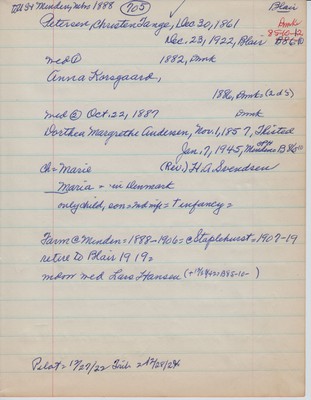 Minden, Nebr 1888 705 Blair
Petersen, Christen Tange, Dec 30, 1861 Dmk
Dec. 23, 1922, Blair
med ① 1882, Dmk
Anna Korsgaard,
1886, Dmk (2 d s)
med ② Oct. 22, 1887 Dmk
Dorthea Margrethe Andersen, Nov. 1, 1857, Thisted
Jan. 7, 1945,
Ch = Marie (Rev.) H A Svendsen
Maria = in Denmark
only child, son = 2nd wife = † infancy =
Farm @ Minden = 1888-1906 = @ Staplehurst = 1907-19
retire to Blair 1919 =
widow med Lars Hansen
Pilot = 12/27/22 Trib =